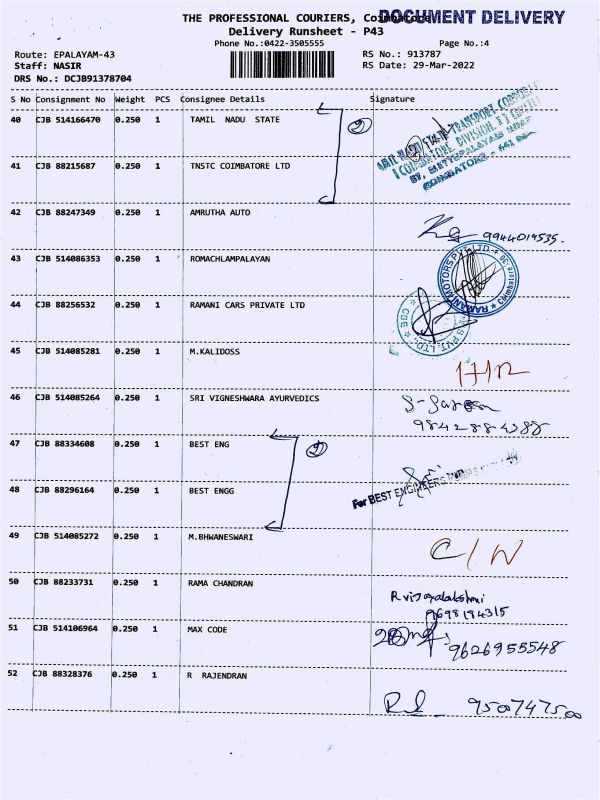 THE PROFESSIONAL COURIERS, Coimbatore
DOCUMENT DELIVERY
Delivery Runsheet - P43
Phone No.:0422-3505555
Page No.:4
Route: EPALAYAM-43
RS No.: 913787
Staff: NASIR
RS Date: 29-Mar-2022
DRS No.: DCJB91378704
S No Consignment No Weight PCS Consignee Details Signature
40 CJB 514166470 0.250 1 TAMIL NADU STATE
2
41 CJB 88215687 0.250 1 TNSTC COIMBATORE LTD
TAMIL NADU STATE TRANSPORT CORPORATION
(COIMBATORE DIVISION II LIMITED
37, METTUPALAYAM ROAD
COIMBATORE - 641
42 CJB 88247349 0.250 1 AMRUTHA AUTO
9944019535.
43 CJB 514086353 0.250 1 ROMACHLAMPALAYAN
RAMANI MOTORS PVT. LTD. Coimbatore
44 CJB 88256532 0.250 1 RAMANI CARS PRIVATE LTD
PVT. LTD. CBE
45 CJB 514085281 0.250 1 M.KALIDOSS
46 CJB 514085264 0.250 1 SRI VIGNESHWARA AYURVEDICS
9842884388
47 CJB 88334608 0.250 1 BEST ENG
2
48 CJB 88296164 0.250 1 BEST ENGG
For BEST ENGINEERS
49 CJB 514085272 0.250 1 M.BHWANESWARI
C/N
50 CJB 88233731 0.250 1 RAMA CHANDRAN
R vijayalakshmi
9698194315
51 CJB 514106964 0.250 1 MAX CODE
9626955548
52 CJB 88328376 0.250 1 R RAJENDRAN
9500747500